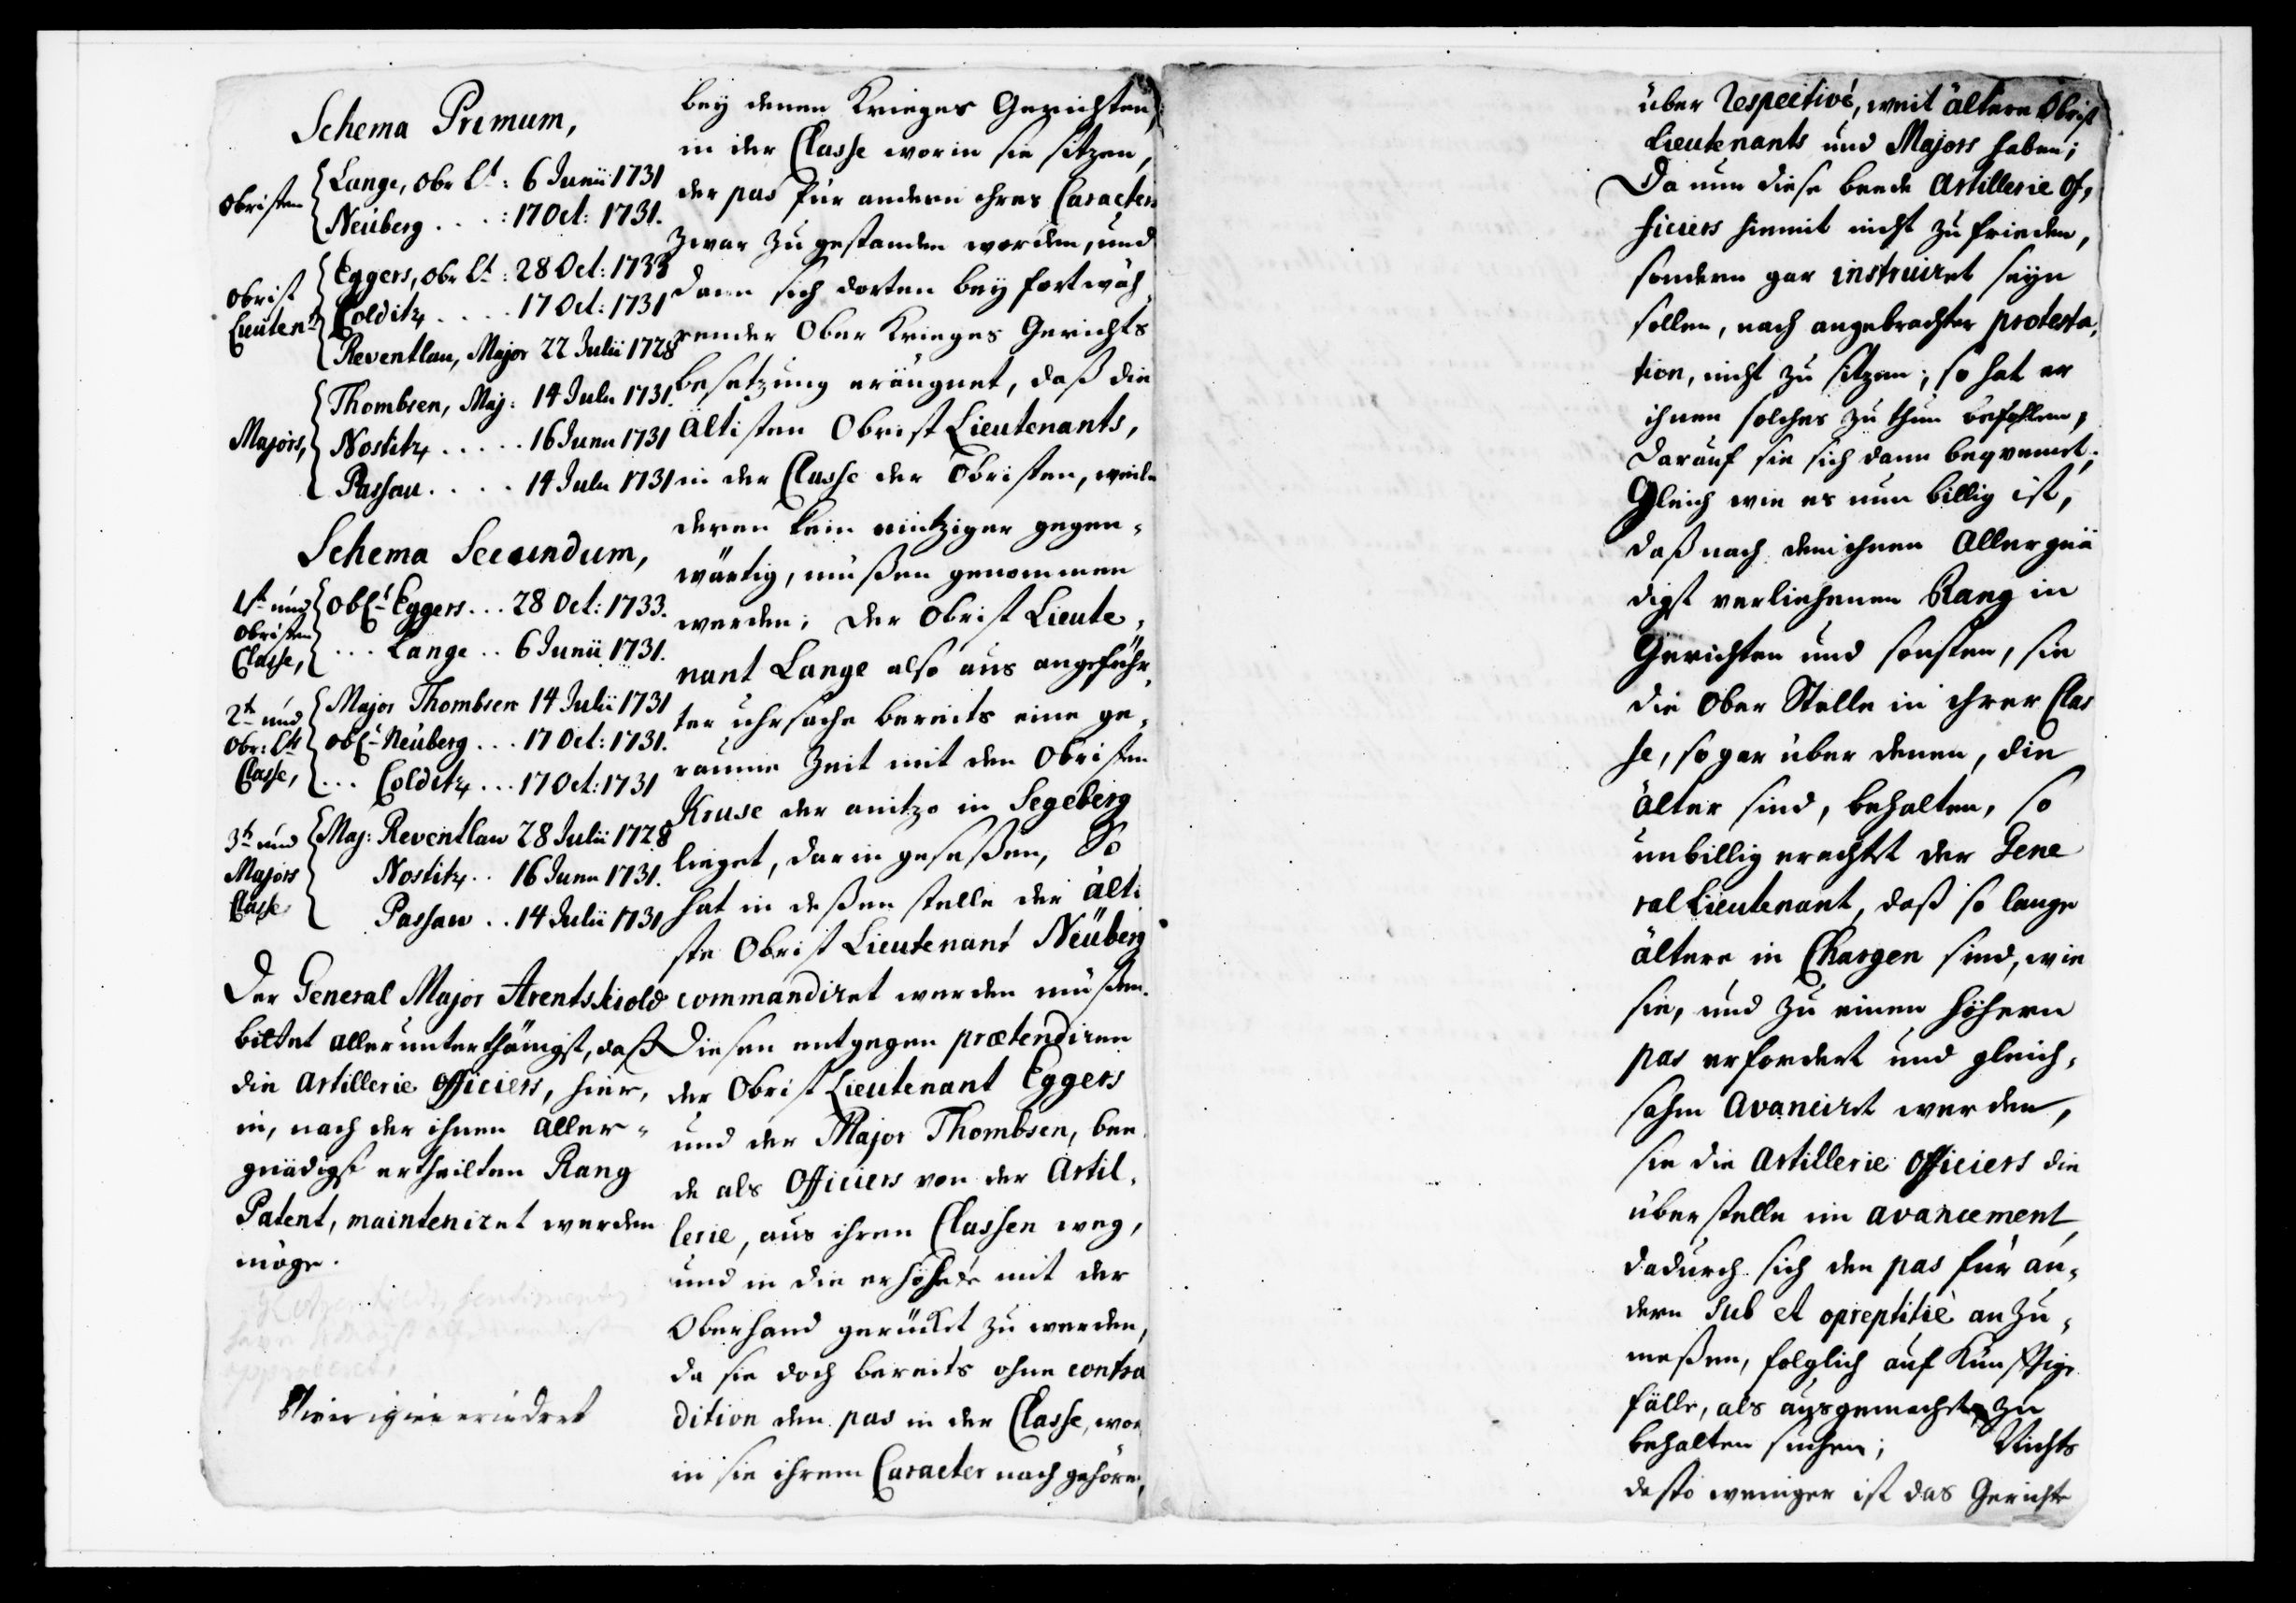 Schema Primum,
Obristen
Lange, Obr Lt: 6 Junii 1731
Neüberg . . . : 17 Oct: 1731.
Obrist Lieutents
Eggers, Obr Lt: 28 Oct: 1733
Colditz . . . . 17 Oct: 1731
Reventlau, Major 22 Julii 1728
Majors,
Thombsen, Maj: 14 Julii 1731.
Nostitz . . . . . 16 Junii 1731
Passau . . . . 14 Julii 1731
Schema Secundum,
1ste und
Obristen
Classe,
Obl:t Eggers . . . 28 Oct: 1733.
. . . Lange . . 6 Junii 1731.
2te und
Obr: Lts
Classe,
Major Thombsen 14 Julii 1731
Obl:t Neüberg . . . 17 Oct: 1731.
. . . Colditz . . . 17 Oct: 1731
3te und
Majors
Classe
Maj: Reventlau 28 Julii 1728
Nostitz . . 16 Junii 1731.
Passau . . 14 Julii 1731
Der General Major Arentskiold
bittet allerunterthänigst, daß
die Artillerie Officiers, hier,
in, nach der ihnen aller-
gnädigst ertheilten Rang
Patent, mainteniret werden
möge.
bey denen Krieges Gerichten,
in der Classe worin sie sitzen,
der pas für andern ihres Caracters
zwar zugestanden worden, und
dann sich dorten bey fortwäh,
render Ober Krieges Gerichts
besetzung eräugnet, daß die
ältisten Obrist Lieutenants,
in der Classe der Obristen, weile
deren kein eintziger gegen-
wärtig, müßen genommen
werden; der Obrist Lieute,
nant Lange also aus angeführ,
ter uhrsache bereits eine ge,
raume Zeit mit den Obristen
Kruse der anitzo in Segeberg
lieget, darin geseßen, So
hat in deßen stelle der älti
ste Obrist Lieutenant Neüberg
commandiret werden müßen.
Diesen entgegen prætendiren
der Obrist Lieutenant Eggers
und der Major Thombsen, bee
de als Officiers von der Artil,
lerie, aus ihren Classen weg,
und in die erhöhete mit der
Oberhand gerücket zu werden,
da sie doch bereits ohne contra
dition den pas in der Classe, wor
in sie ihrem Caracter nach gehören,
über respectivè, weit ältere Obrist
Lieutenants und Majors haben;
Da nun diese beede Artillerie Of,
ficiers hiemit nicht zu frieden,
sondern gar instruiret seyn
sollen, nach angebrachter protesta,
tion, nicht zu sitzen; so hat er
ihnen solches zu thun befohlen,
darauf sie sich dann beqvemet;
Gleich wie es nun billig ist,
daß nach dem ihnen Allergnä
digst verliehenen Rang in
Gerichten und sonsten, sie
die Ober Stelle in ihrer Clas
se, sogar über denen, die
älter sind, behalten, so
unbillig erachtet der Gene
ral Lieutenant, daß so lange
ältere in Chargen sind, wie
sie, und zu einen höhern
pas erfordert und gleich,
sahm avanciret werden,
sie die Artillerie Officiers die
überstelle im avancement,
dadurch sich den pas für an,
dern sub et opreptitiè anzu,
maßen, folglich auf künfftige
fälle, als ausgemacht zu
behalten suchen; Nichts
desto weniger ist das Gerichte